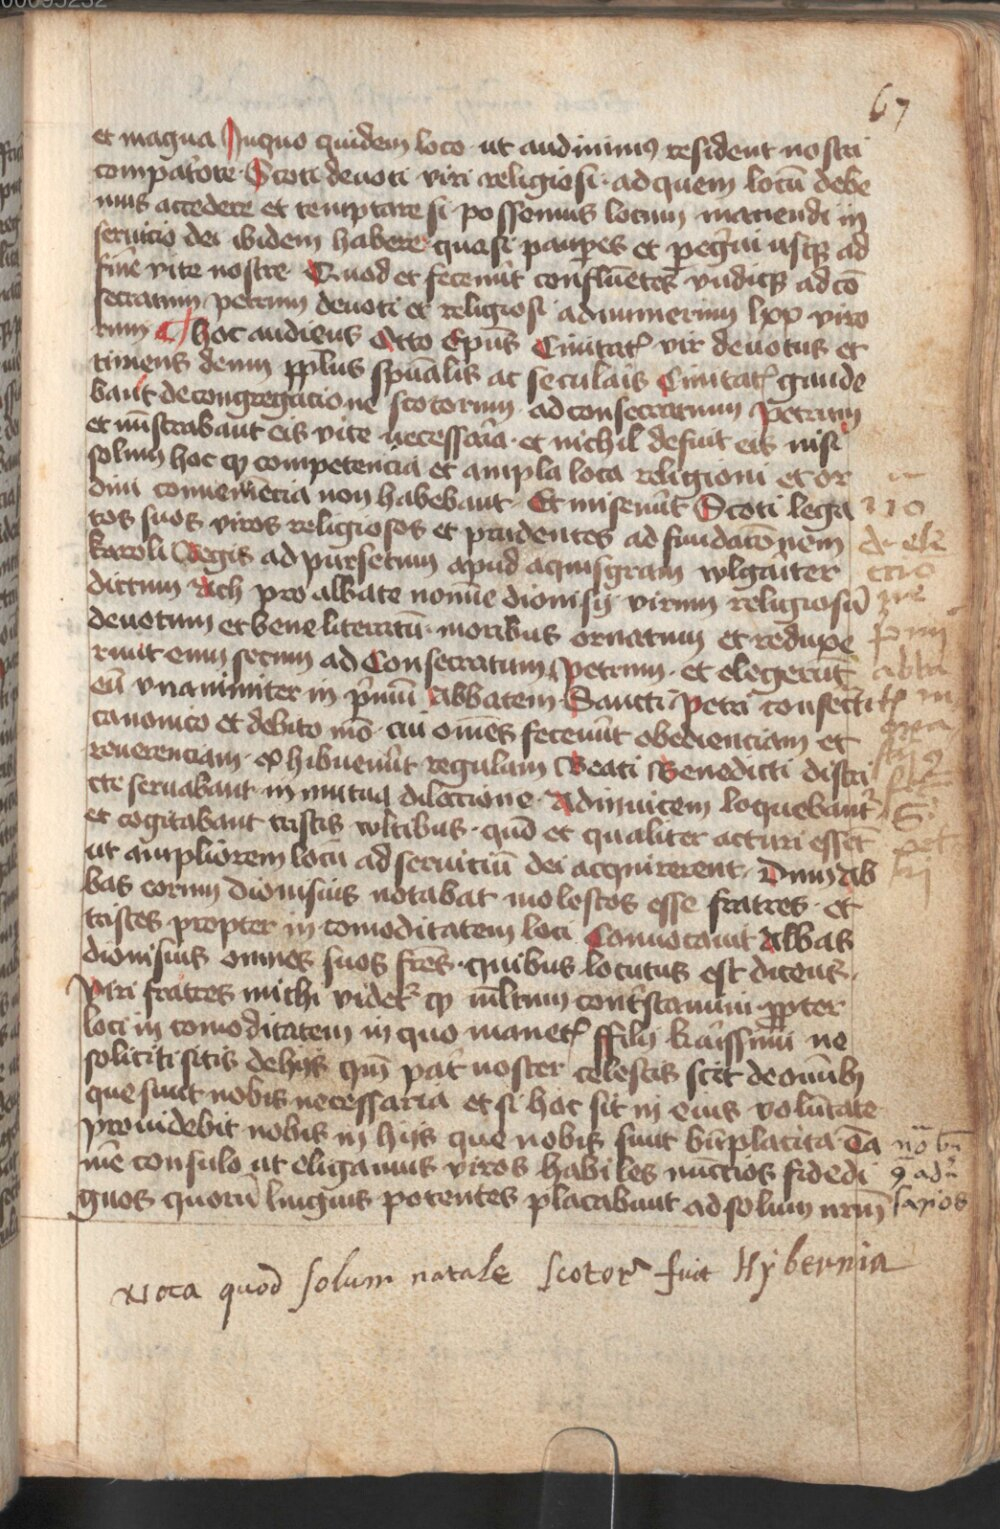 67
et magna Inquo quidem loco ut audiuimus resident nostri
compatōre Scoti deuoti viri religiosi adquem locū debe
mus accedere et temptare si possemus locum manendi in
seruicio dei ibidem habere quasi paupes et pegrini usq ad
finē vite nostre Quod et fecerūt confluētes vndiq ad cō
secratum petrum deuoti et religiosi adnumerum lxx viro
rum hoc audiens Otto Epūs Ciuitat vir deuotus et
timens deum pplus spūalis ac seculais Ciuitat gaude
bāt decongregacione scotorum ad consecratum petrum
et mīstrabant eis vite necessaria et nichil defuit eis nisi
solum hoc q competencia et ampla loca religioni et or
dini conueniēcia non habebant Et miserūt Scoti lega
tos suos viros religiosos et prudentes ad fundatōnem
karoli Regis ad pursetum apud aquisgram wlgaiter
dictum Ach pro abbate nomīe dionisij virum religiosū
deuotum et bene litteratū moribus ornatum et reduxe
runt eum secum ad Consecratum petrum et elegerūt
eū vnanimiter in pīmū Abbatem Sancti Petri consecti
canonico et debito mō cui omēs fecerūt obedienciam et
reuerenciam exhibuerūt regulam Beati Benedicti distri
cte seruabant in mutua dilectione Adinuicem loquebant
et cogitabant tristis wltibus qud et qualiter acturi essēt
ut ampliorem locū ad seruitiū dei acquirerent Dum ab
bas eorum dionisius notabat molestos esse fratres et
tristes propter in comoditatem loci Conuocauit Abbas
dionisius omnes suos frēs quibus locutus est dicens
Viri fratres michi videt q mltum contristamini ppter
loci in comoditatem in quo manet ffilij kaīssimi ne
soliciti sitis dehijs qm pat noster celestis scit deomībz
que sunt nobis necessaria et si hoc sit in eius volūtate
prouidebit nobis in hijs que nobis sunt bnplacita Ta
mē consulo ut eligamus viros habiles nuncios fidedi
gnos quorū linguis potentes placabunt ad solum nrm
de ele
ctio
ne
pmi
abba
S
pet
ri
saxos
Nota quod solum natale scotor fuit Hybernia